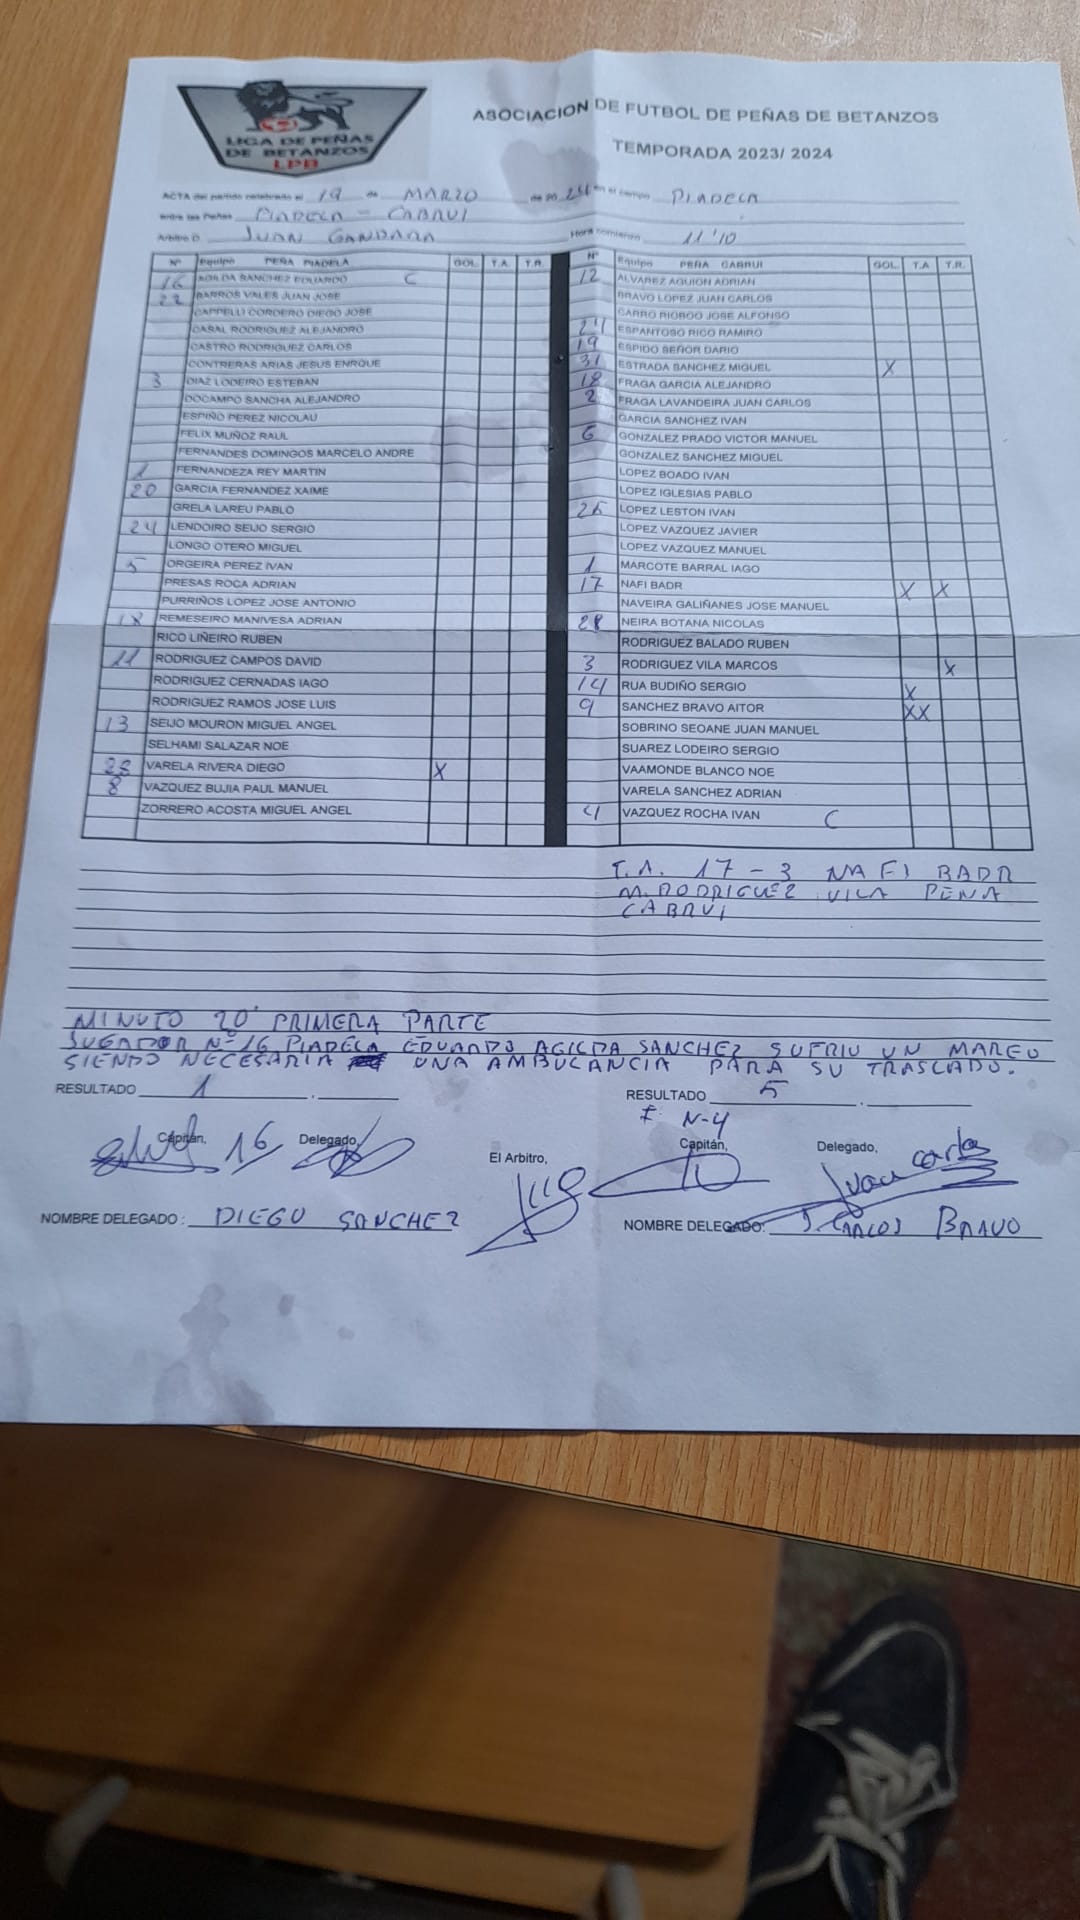 LIGA DE PEÑAS
DE BETANZOS
LPB
ASOCIACION DE FUTBOL DE PEÑAS DE BETANZOS
TEMPORADA 2023/ 2024
ACTA del partido celebrado el 19 de MARZO de 20 24 en el campo PIADELA
entre las Peñas PIADELA - CABRUI
Arbitro D. JUAN GANDARA Hora comienzo 11'10
Nº Equipo PEÑA PIADELA GOL. T.A. T.R.
16 AGILDA SANCHEZ EDUARDO C
22 BARROS VALES JUAN JOSE
CAPPELLI CORDERO DIEGO JOSE
CASAL RODRIGUEZ ALEJANDRO
CASTRO RODRIGUEZ CARLOS
CONTRERAS ARIAS JESUS ENRQUE
3 DIAZ LODEIRO ESTEBAN
DOCAMPO SANCHA ALEJANDRO
ESPIÑO PEREZ NICOLAU
FELIX MUÑOZ RAUL
FERNANDES DOMINGOS MARCELO ANDRE
1 FERNANDEZA REY MARTIN
20 GARCIA FERNANDEZ XAIME
GRELA LAREU PABLO
24 LENDOIRO SEIJO SERGIO
LONGO OTERO MIGUEL
5 ORGEIRA PEREZ IVAN
PRESAS ROCA ADRIAN
PURRIÑOS LOPEZ JOSE ANTONIO
18 REMESEIRO MANIVESA ADRIAN
RICO LIÑEIRO RUBEN
11 RODRIGUEZ CAMPOS DAVID
RODRIGUEZ CERNADAS IAGO
RODRIGUEZ RAMOS JOSE LUIS
13 SEIJO MOURON MIGUEL ANGEL
SELHAMI SALAZAR NOE
25 VARELA RIVERA DIEGO X
8 VAZQUEZ BUJIA PAUL MANUEL
ZORRERO ACOSTA MIGUEL ANGEL
Nº Equipo PEÑA CABRUI GOL. T.A T.R.
12 ALVAREZ AGUION ADRIAN
BRAVO LOPEZ JUAN CARLOS
CARRO RIOBOO JOSE ALFONSO
24 ESPANTOSO RICO RAMIRO
19 ESPIDO SEÑOR DARIO
31 ESTRADA SANCHEZ MIGUEL X
18 FRAGA GARCIA ALEJANDRO
2 FRAGA LAVANDEIRA JUAN CARLOS
GARCIA SANCHEZ IVAN
6 GONZALEZ PRADO VICTOR MANUEL
GONZALEZ SANCHEZ MIGUEL
LOPEZ BOADO IVAN
LOPEZ IGLESIAS PABLO
LOPEZ LESTON IVAN
LOPEZ VAZQUEZ JAVIER
LOPEZ VAZQUEZ MANUEL
1 MARCOTE BARRAL IAGO
17 NAFI BADR X X
NAVEIRA GALIÑANES JOSE MANUEL
28 NEIRA BOTANA NICOLAS
RODRIGUEZ BALADO RUBEN
3 RODRIGUEZ VILA MARCOS X
14 RUA BUDIÑO SERGIO X
9 SANCHEZ BRAVO AITOR XX
SOBRINO SEOANE JUAN MANUEL
SUAREZ LODEIRO SERGIO
VAAMONDE BLANCO NOE
VARELA SANCHEZ ADRIAN
4 VAZQUEZ ROCHA IVAN C
T.A. 17 - 3 NAFI BADR
M. RODRIGUEZ VILA PENA
CABRUI
MINUTO 20' PRIMERA PARTE
JUGADOR Nº 16 PIADELA EDUARDO AGILDA SANCHEZ SUFRIU UN MAREO
SIENDO NECESARIA UNA AMBULANCIA PARA SU TRASLADO.
RESULTADO 1 .
RESULTADO 5 .
N-4
Capitán, 16 Delegado,
El Arbitro,
Capitán, Delegado,
Juan Carlos
NOMBRE DELEGADO : DIEGO SANCHEZ
NOMBRE DELEGADO: J. CARLOS BRAVO